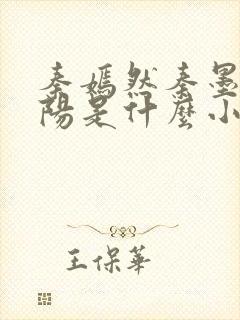 秦嫣然秦墨
陽是什麼小
王保華